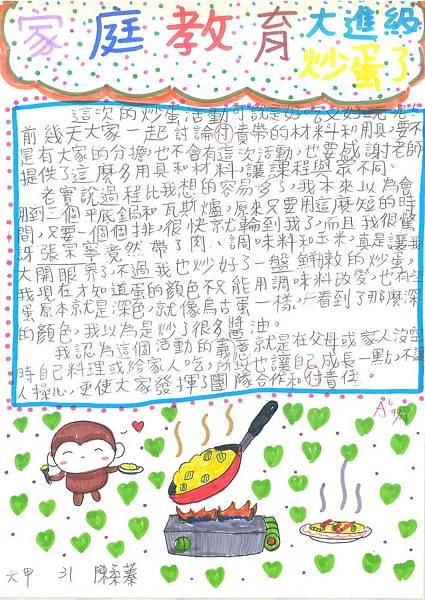 家庭教育大進級
炒蛋了
這次的炒蛋活動可說是好吃又好玩呢!
前幾天大家一起討論付責帶的材料和用具,要不
是有大家的分擔,也不會有這次活動,也要感謝老師
提供了這麼多用具和材料,讓課程與眾不同。
老實說過程比我想的容易多了,我本來以為會
用到二個平底鍋和瓦斯爐,原來只要用這麼短的時
間,又要一個個排,很快就輪到我了,而且我很驚
訝張家寧竟然帶了肉、調味料和玉米,真是讓我
大開眼界了不過我也炒好了一盤鮮嫩的炒蛋,
我現在才知道蛋的顏色不只能用調味料改變,也有些
蛋原本就是深色,就像烏古蛋一樣,看到了那麼深
的顏色,我以為是炒了很多醬油。
我認為這個活動的義意就是在父母或家人沒空
時自己料理或給家人吃,所以也讓自己成長一點,不讓
人操心,更使大家發揮了團隊合作和付責任。
六甲 31 陳